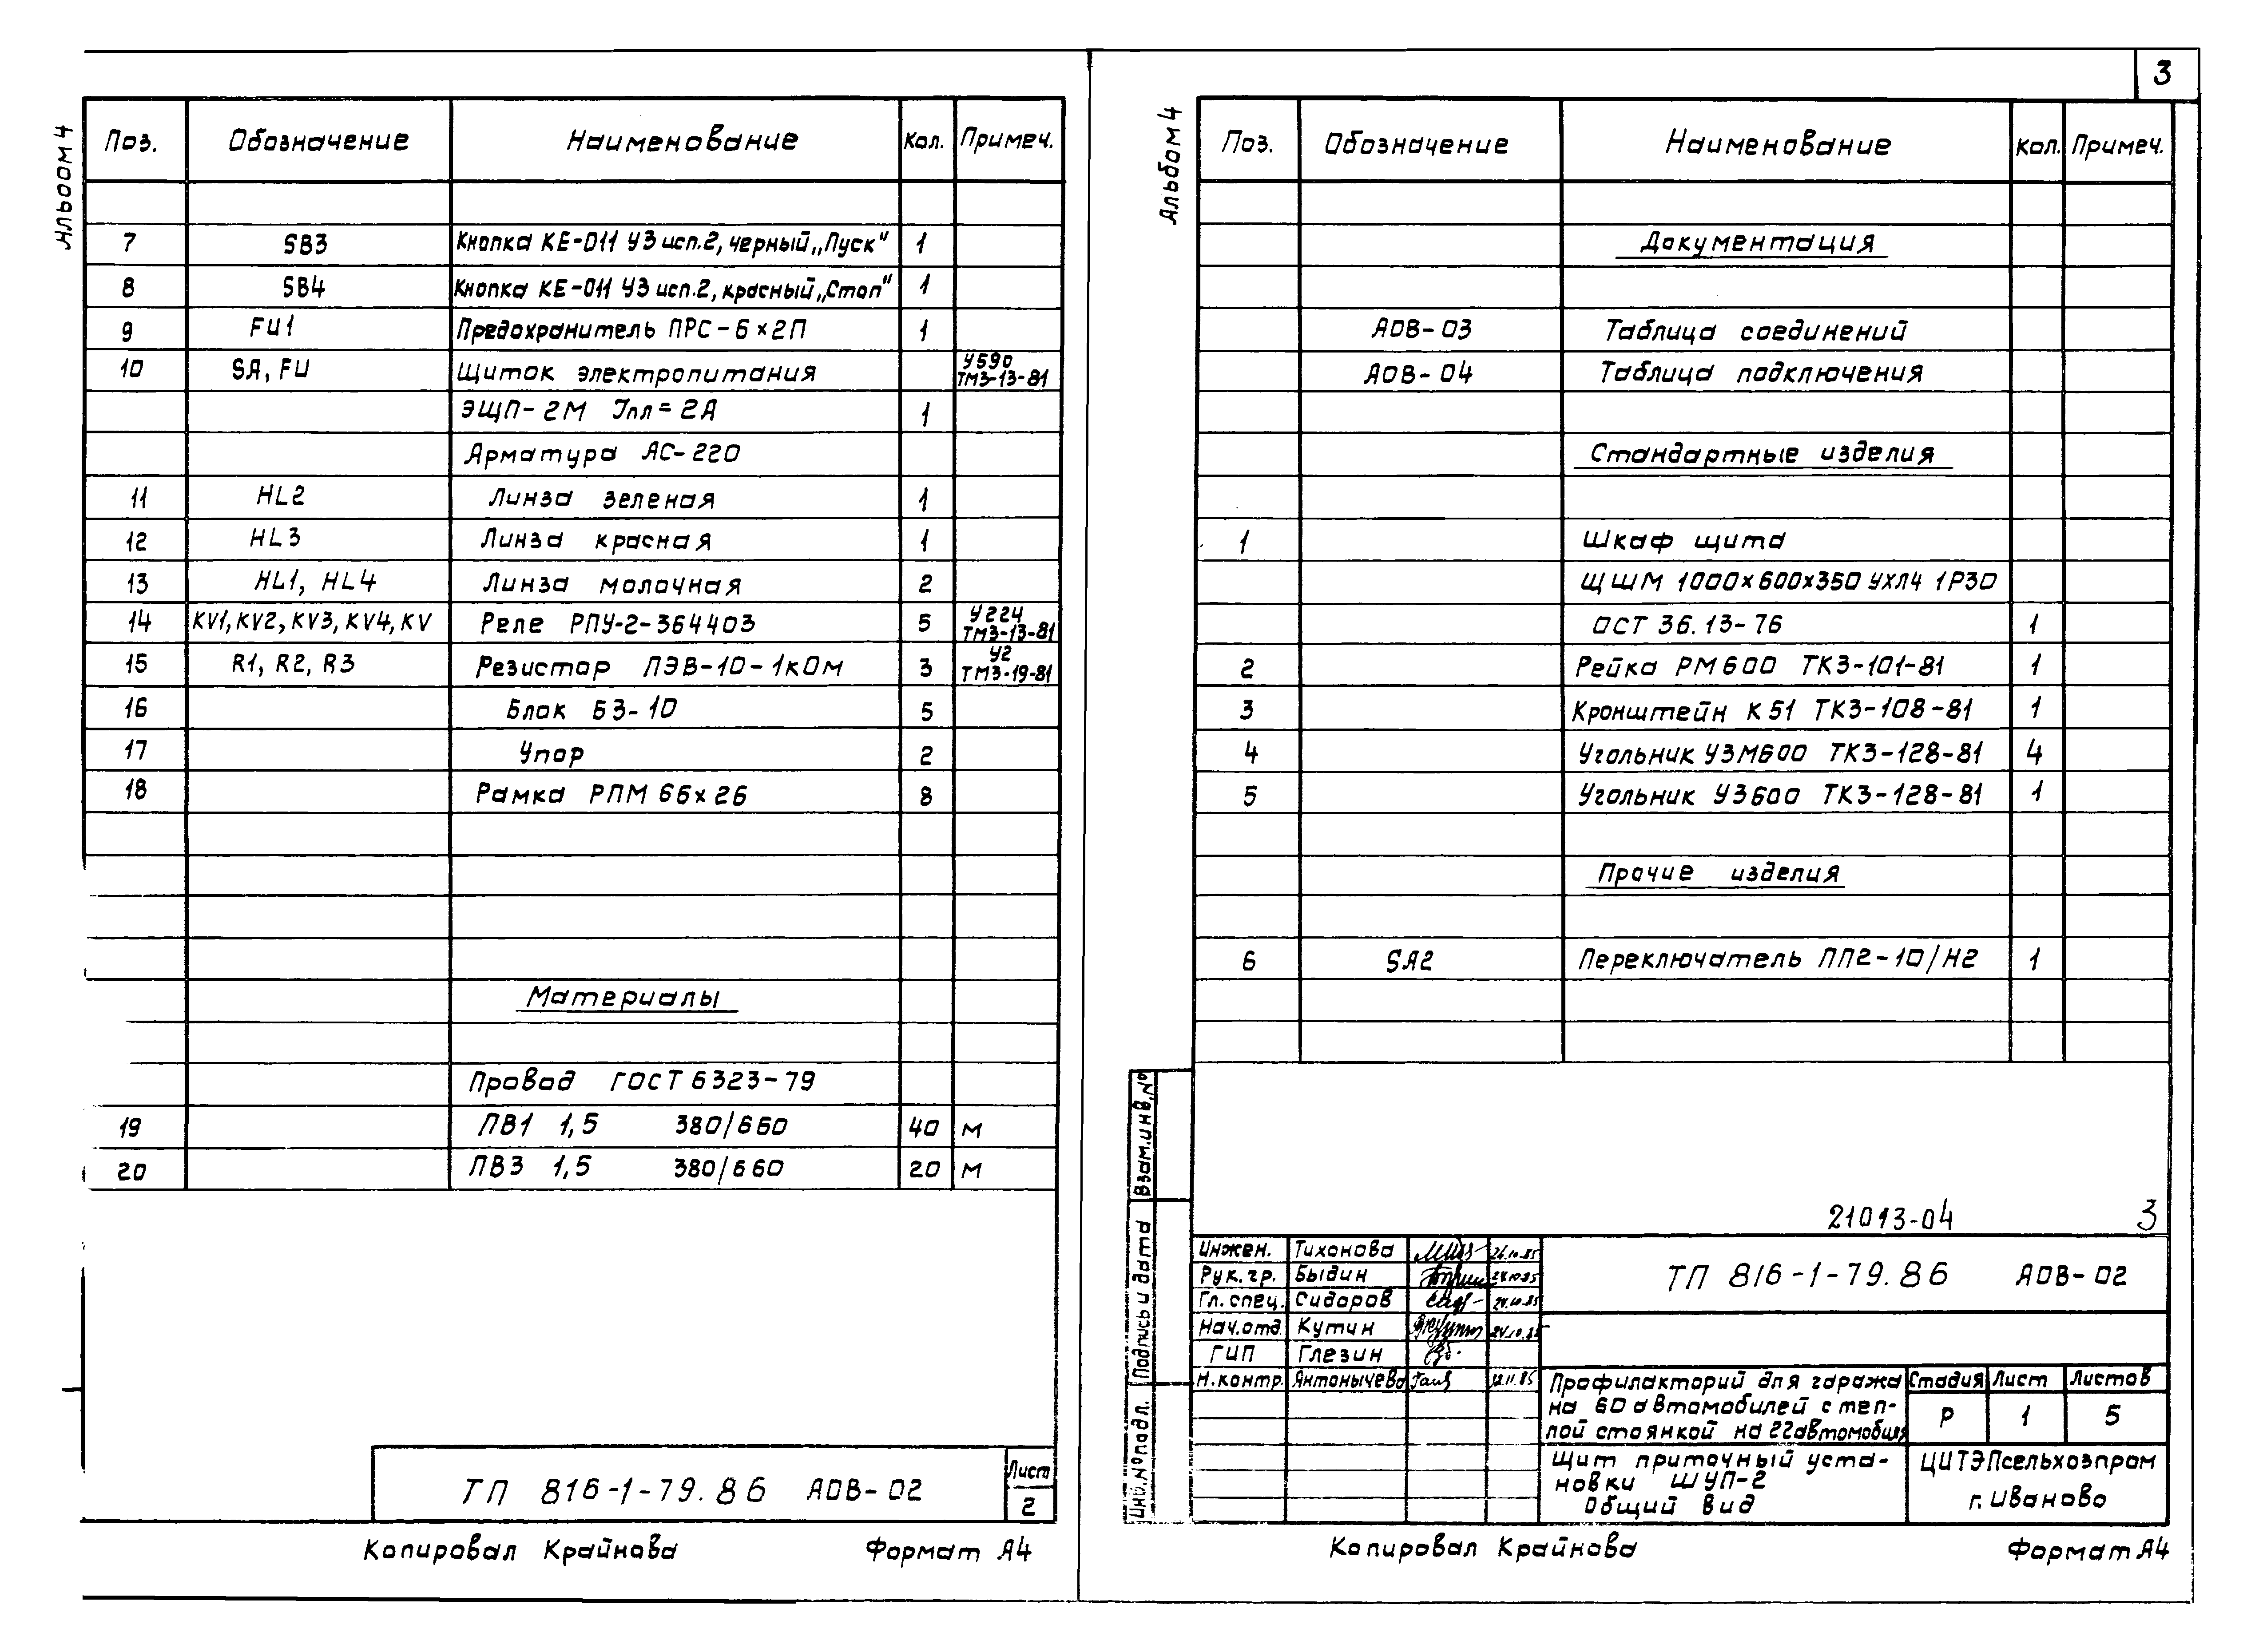 3
Альбом 4
Поз. Обозначение Наименование Кол. Примеч.
7 SB3 Кнопка КЕ-011 У3 исп.2, черный „Пуск" 1
8 SB4 Кнопка КЕ-011 У3 исп.2, красный „Стоп" 1
9 FU1 Предохранитель ПРС-6×2П 1
10 SA, FU Щиток электропитания У590 ТМ3-13-81
ЭЩП-2М Iпл=2А 1
Арматура АС-220
11 HL2 Линза зеленая 1
12 HL3 Линза красная 1
13 HL1, HL4 Линза молочная 2
14 KV1, KV2, KV3, KV4, KV Реле РПУ-2-364403 5 У224 ТМ3-13-81
15 R1, R2, R3 Резистор ПЭВ-10-1кОм 3 У2 ТМ3-19-81
16 Блок БЗ-10 5
17 Упор 2
18 Рамка РПМ 66×26 8
Материалы
Провод ГОСТ 6323-79
19 ПВ1 1,5 380/660 40 м
20 ПВ3 1,5 380/660 20 м
ТП 816-1-79.86 АОВ-02
Лист
2
Копировал Крайнова Формат А4
Альбом 4
Поз. Обозначение Наименование Кол. Примеч.
Документация
АОВ-03 Таблица соединений
АОВ-04 Таблица подключения
Стандартные изделия
1 Шкаф щита
ЩШМ 1000×600×350 УХЛ4 1Р30
ОСТ 36.13-76 1
2 Рейка РМ600 ТК3-101-81 1
3 Кронштейн К51 ТК3-108-81 1
4 Угольник УЗМ600 ТК3-128-81 4
5 Угольник УЗ600 ТК3-128-81 1
Прочие изделия
6 SA2 Переключатель ПП2-10/Н2 1
Взам.инв.№
Подпись и дата
Инв.№подл.
21013-04 3
Инжен. Тихонова 24.10.85
Рук.гр. Быдин 24.10.85
Гл.спец. Сидоров 24.10.85
Нач.отд. Кутин 24.10.85
ГИП Глезин
Н.контр. Антонычева 12.11.85
ТП 816-1-79.86 АОВ-02
Профилакторий для гаража
на 60 автомобилей с теп-
лой стоянкой на 22 автомобиля
Стадия Лист Листов
Р 1 5
Щит приточный уста-
новки ШУП-2
Общий вид
ЦИТЭПсельхозпром
г. Иваново
Копировал Крайнова Формат А4